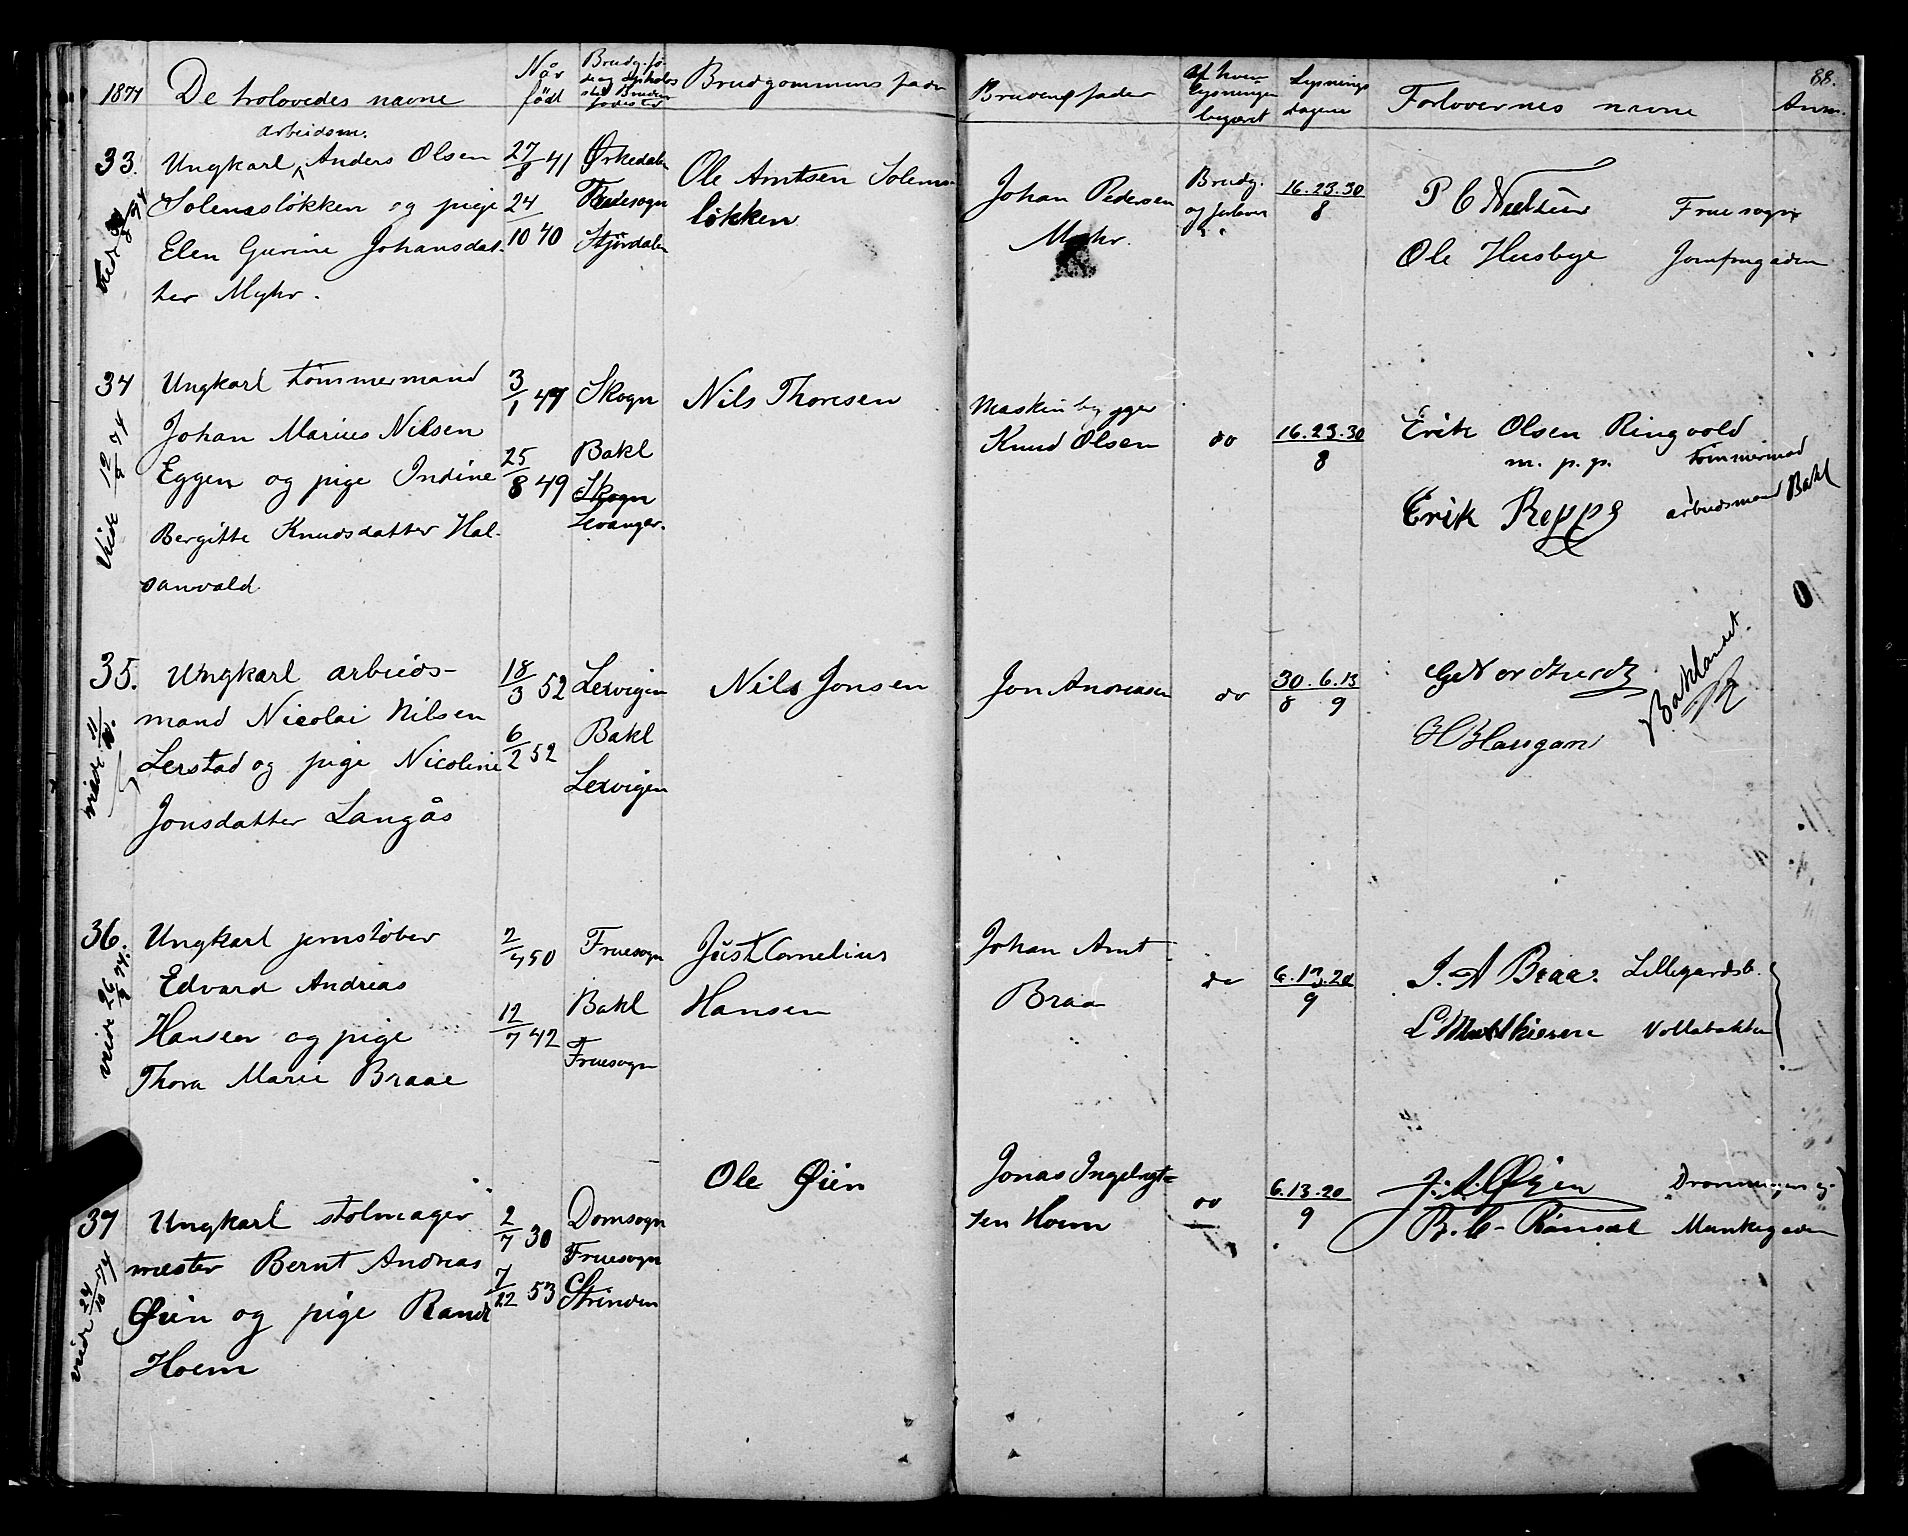 1874 De trolovedes navne
Når född
Brudg. fö-
de og opholds
sted Bruden
fødested
Brudgommens fader
Brudens fader
Af hvem
lysningen
begjæret
Lysnings
dagene
Forlovernes navne
Anm.
88.
33. Ungkarl arbeidsm. Anders Olsen
Solemsløkken og pige
Elen Gurine Johansdat-
ter Myhr.
27/8 41
24/10 40
Ørkedalen
Fruesogn
Stjørdalen
Ole Arntsen Solems-
løkken
Johan Pedersen
Myhr.
Brudg.
og forlover
16.23.30
8
P C
Fruesogn
Ole Husbye Jomfrugaden
34 Ungkarl tømmermand
Johan Marius Nilsen
Eggen og pige Indine
Bergitte Knudsdatter Hal-
sanvald
viede 12/9 74
3/1 47
25/8 49
Skogn
Bakl
Skogn
Levanger.
Nils Thoresen
Maskinbygger
Knud Olsen
do
16.23.30
8
Erik Olsen Ringvold
m. p. p. tømmermand
Erik Reppe arbeidsmand Bakl
35. Ungkarl arbeids-
mand Nicolai Nilsen
Lerstad og pige Nicoline
Jonsdatter Langås
18/3 52
6/2 52
Lexvigen
Bakl
Lexvigen
Nils Jonsen
Jon Andreasen
do
30. 6.13
8 9
H Haugan
Baklandet.
36. Ungkarl jernstöber
Edvard Andreas
Hansen og pige
Thora Marie Braae
viede 26/9 74.
2/4 50
12/7 42
Fruesogn
Bakl
Fruesogn
Just Cornelius
Hansen
Johan Arnt
Braa
do
6.13.20
9
J. A Braa. Lillegårdsb.
L Mathiesen Vollabakken
37 Ungkarl stolmager
mester Bernt Andreas
Øien og pige Randi
Hoem
viede 24/10 74
2/7 30
7/22 53
Domsogn
Fruesogn
Strinden
Ole Øien
Jonas Ingebrigt-
sen Hoem
do
6.13.20
9
J. A. Øyen Dronningens g.
B. C. Munkegaden